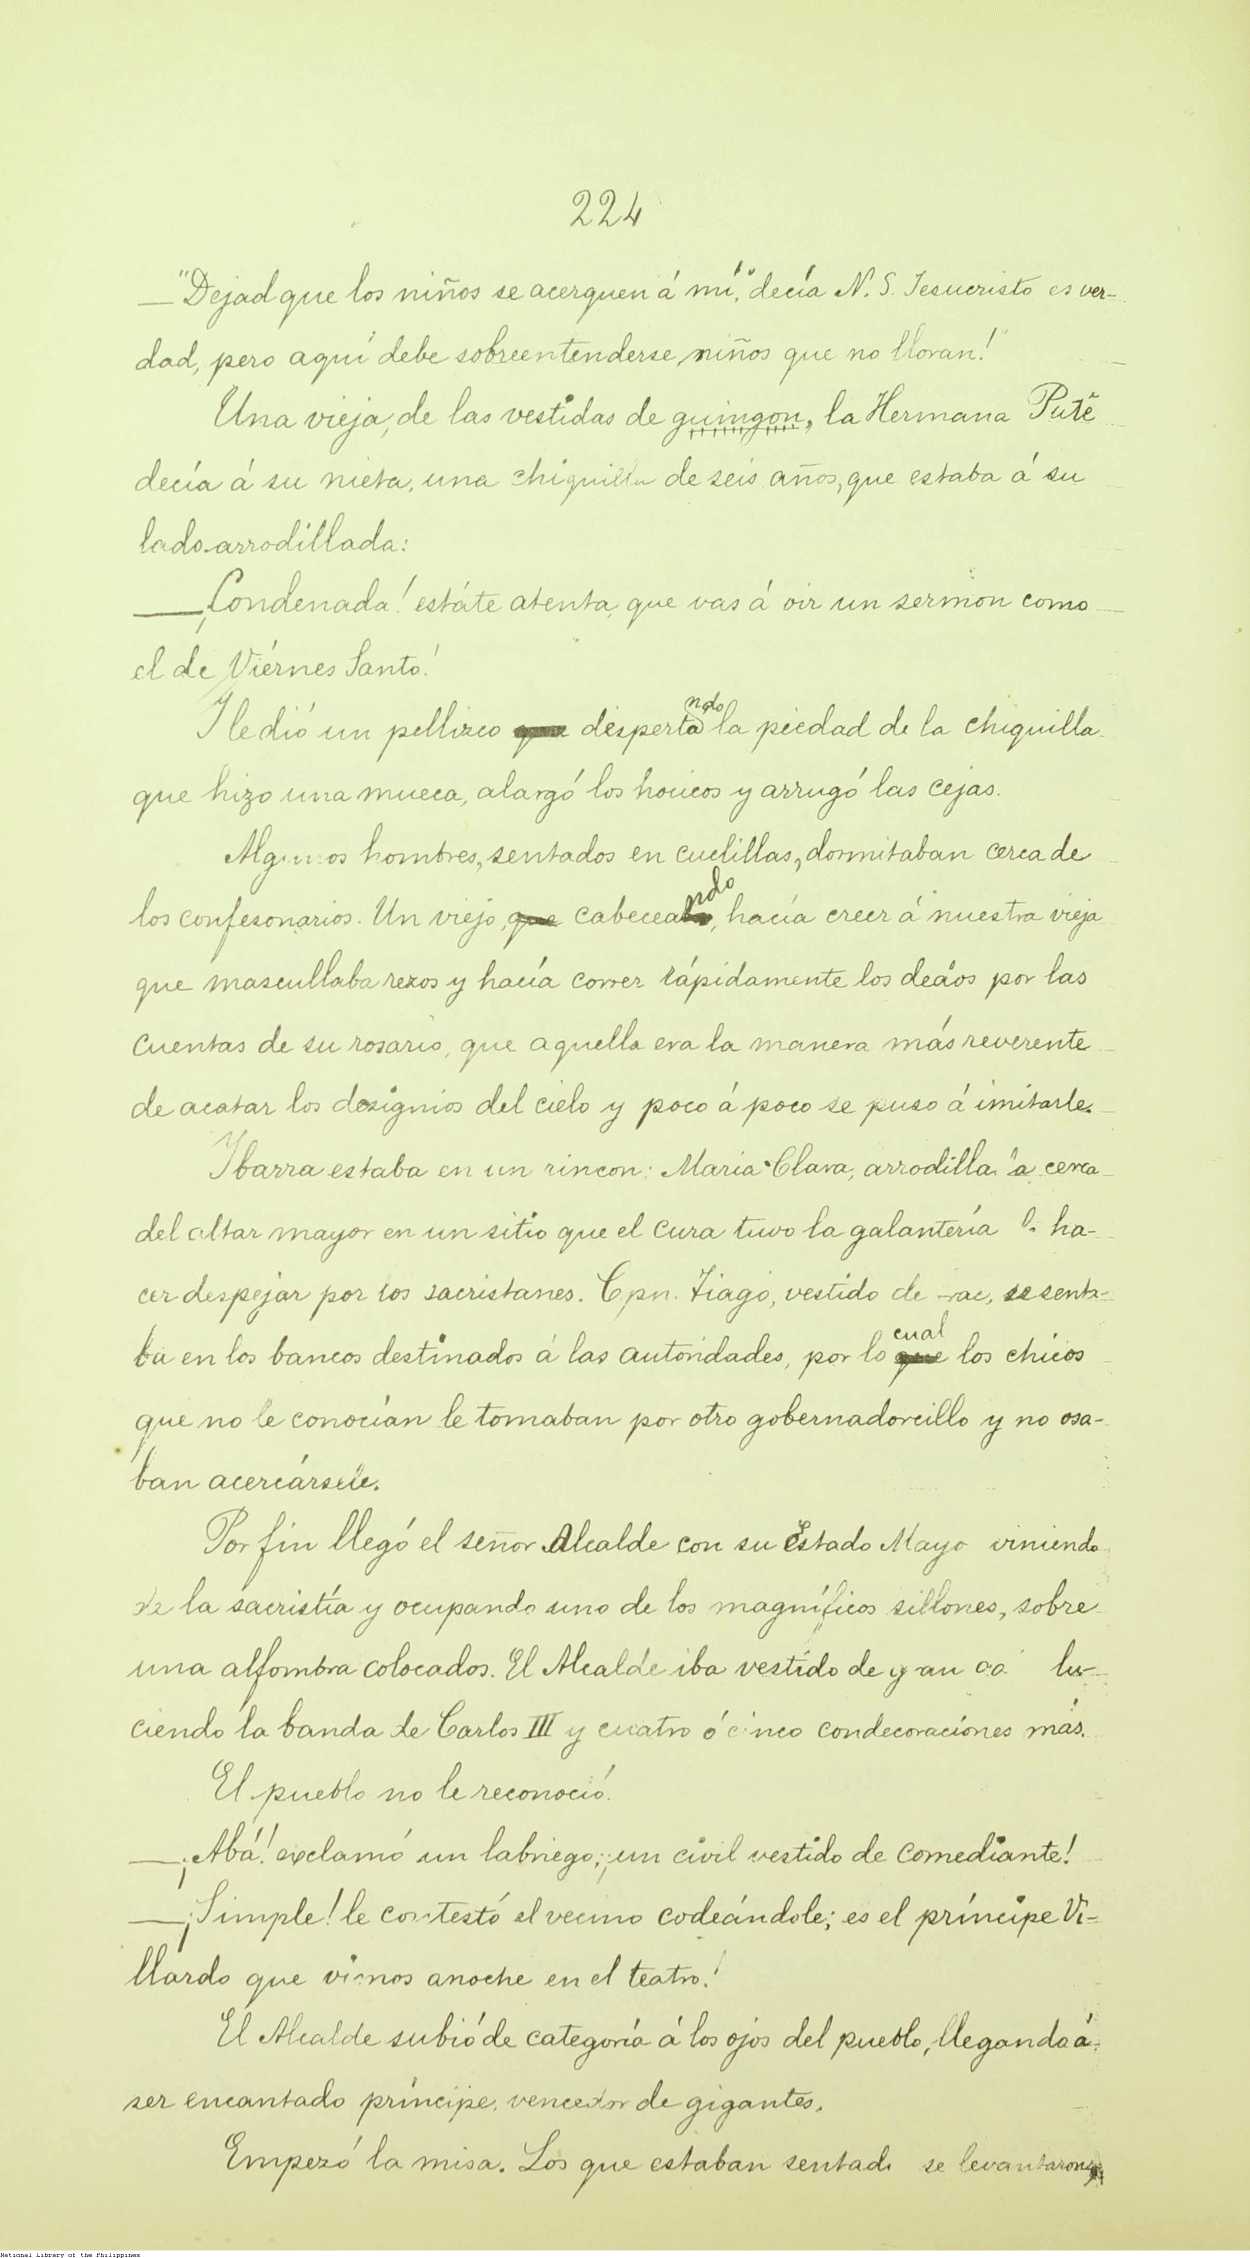 224
— "Dejad que los niños se acerquen á mí," decía N. S. Jesucristo es ver-
dad, pero aquí debe sobreentenderse, niños que no lloran!
Una vieja, de las vestidas de guingon, la Hermana Putê
decía á su nieta, una chiquilla de seis años, que estaba á su
lado arrodillada:
— ¡Condenada! estáte atenta, que vas á oir un sermon como
el de Viérnes Santo!
I le dió un pellizco que despertando la piedad de la chiquilla
que hizo una mueca, alargó los hocicos y arrugó las cejas.
Algunos hombres, sentados en cuclillas, dormitaban cerca de
los confesonarios. Un viejo, que cabeceando, hacía creer á nuestra vieja
que mascullaba rezos y hacía correr rápidamente los dedos por las
cuentas de su rosario, que aquella era la manera más reverente
de acatar los designios del cielo y poco á poco se puso á imitarle.
Ibarra estaba en un rincon: María Clara, arrodillada cerca
del altar mayor en un sitio que el cura tuvo la galantería ha-
cer despejar por los sacristanes. Cpn. Tiago, vestido de frac, se senta-
ba en los bancos destinados á las autoridades, por lo que cual los chicos
que no le conocían le tomaban por otro gobernadorcillo y no osa-
ban acercársele.
Por fin llegó el señor Alcalde con su Estado Mayo viniendo
de la sacristía y ocupando uno de los magníficos sillones, sobre
una alfombra colocados. El Alcalde iba vestido de gran lu-
ciendo la banda de Carlos III y cuatro ó cinco condecoraciones más.
El pueblo no le reconoció.
— ¡Abá! exclamó un labriego; ¡un civil vestido de comediante!
— ¡Simple! le contestó el vecino codeándole; es el príncipe Vi-
llardo que vimos anoche en el teatro!
El Alcalde subió de categoría á los ojos del pueblo, llegando á
ser encantado príncipe, vencedor de gigantes.
Empezó la misa. Los que estaban sentad se levantaron,
National Library of the Philippines